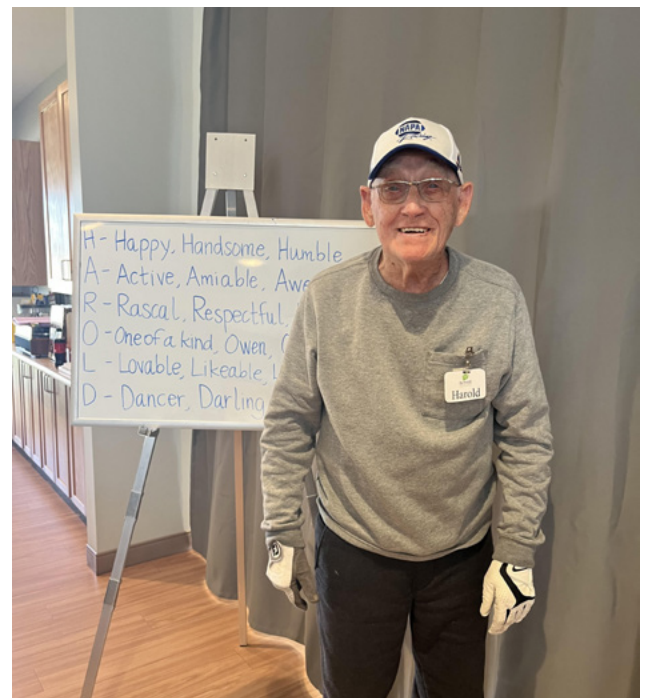 NAPA
H - Happy, Handsome, Humble
A - Active, Amiable,
R - Rascal, Respectful,
O - One of a kind, Owen,
L - Lovable, Likeable,
D - Dancer, Darling
Harold